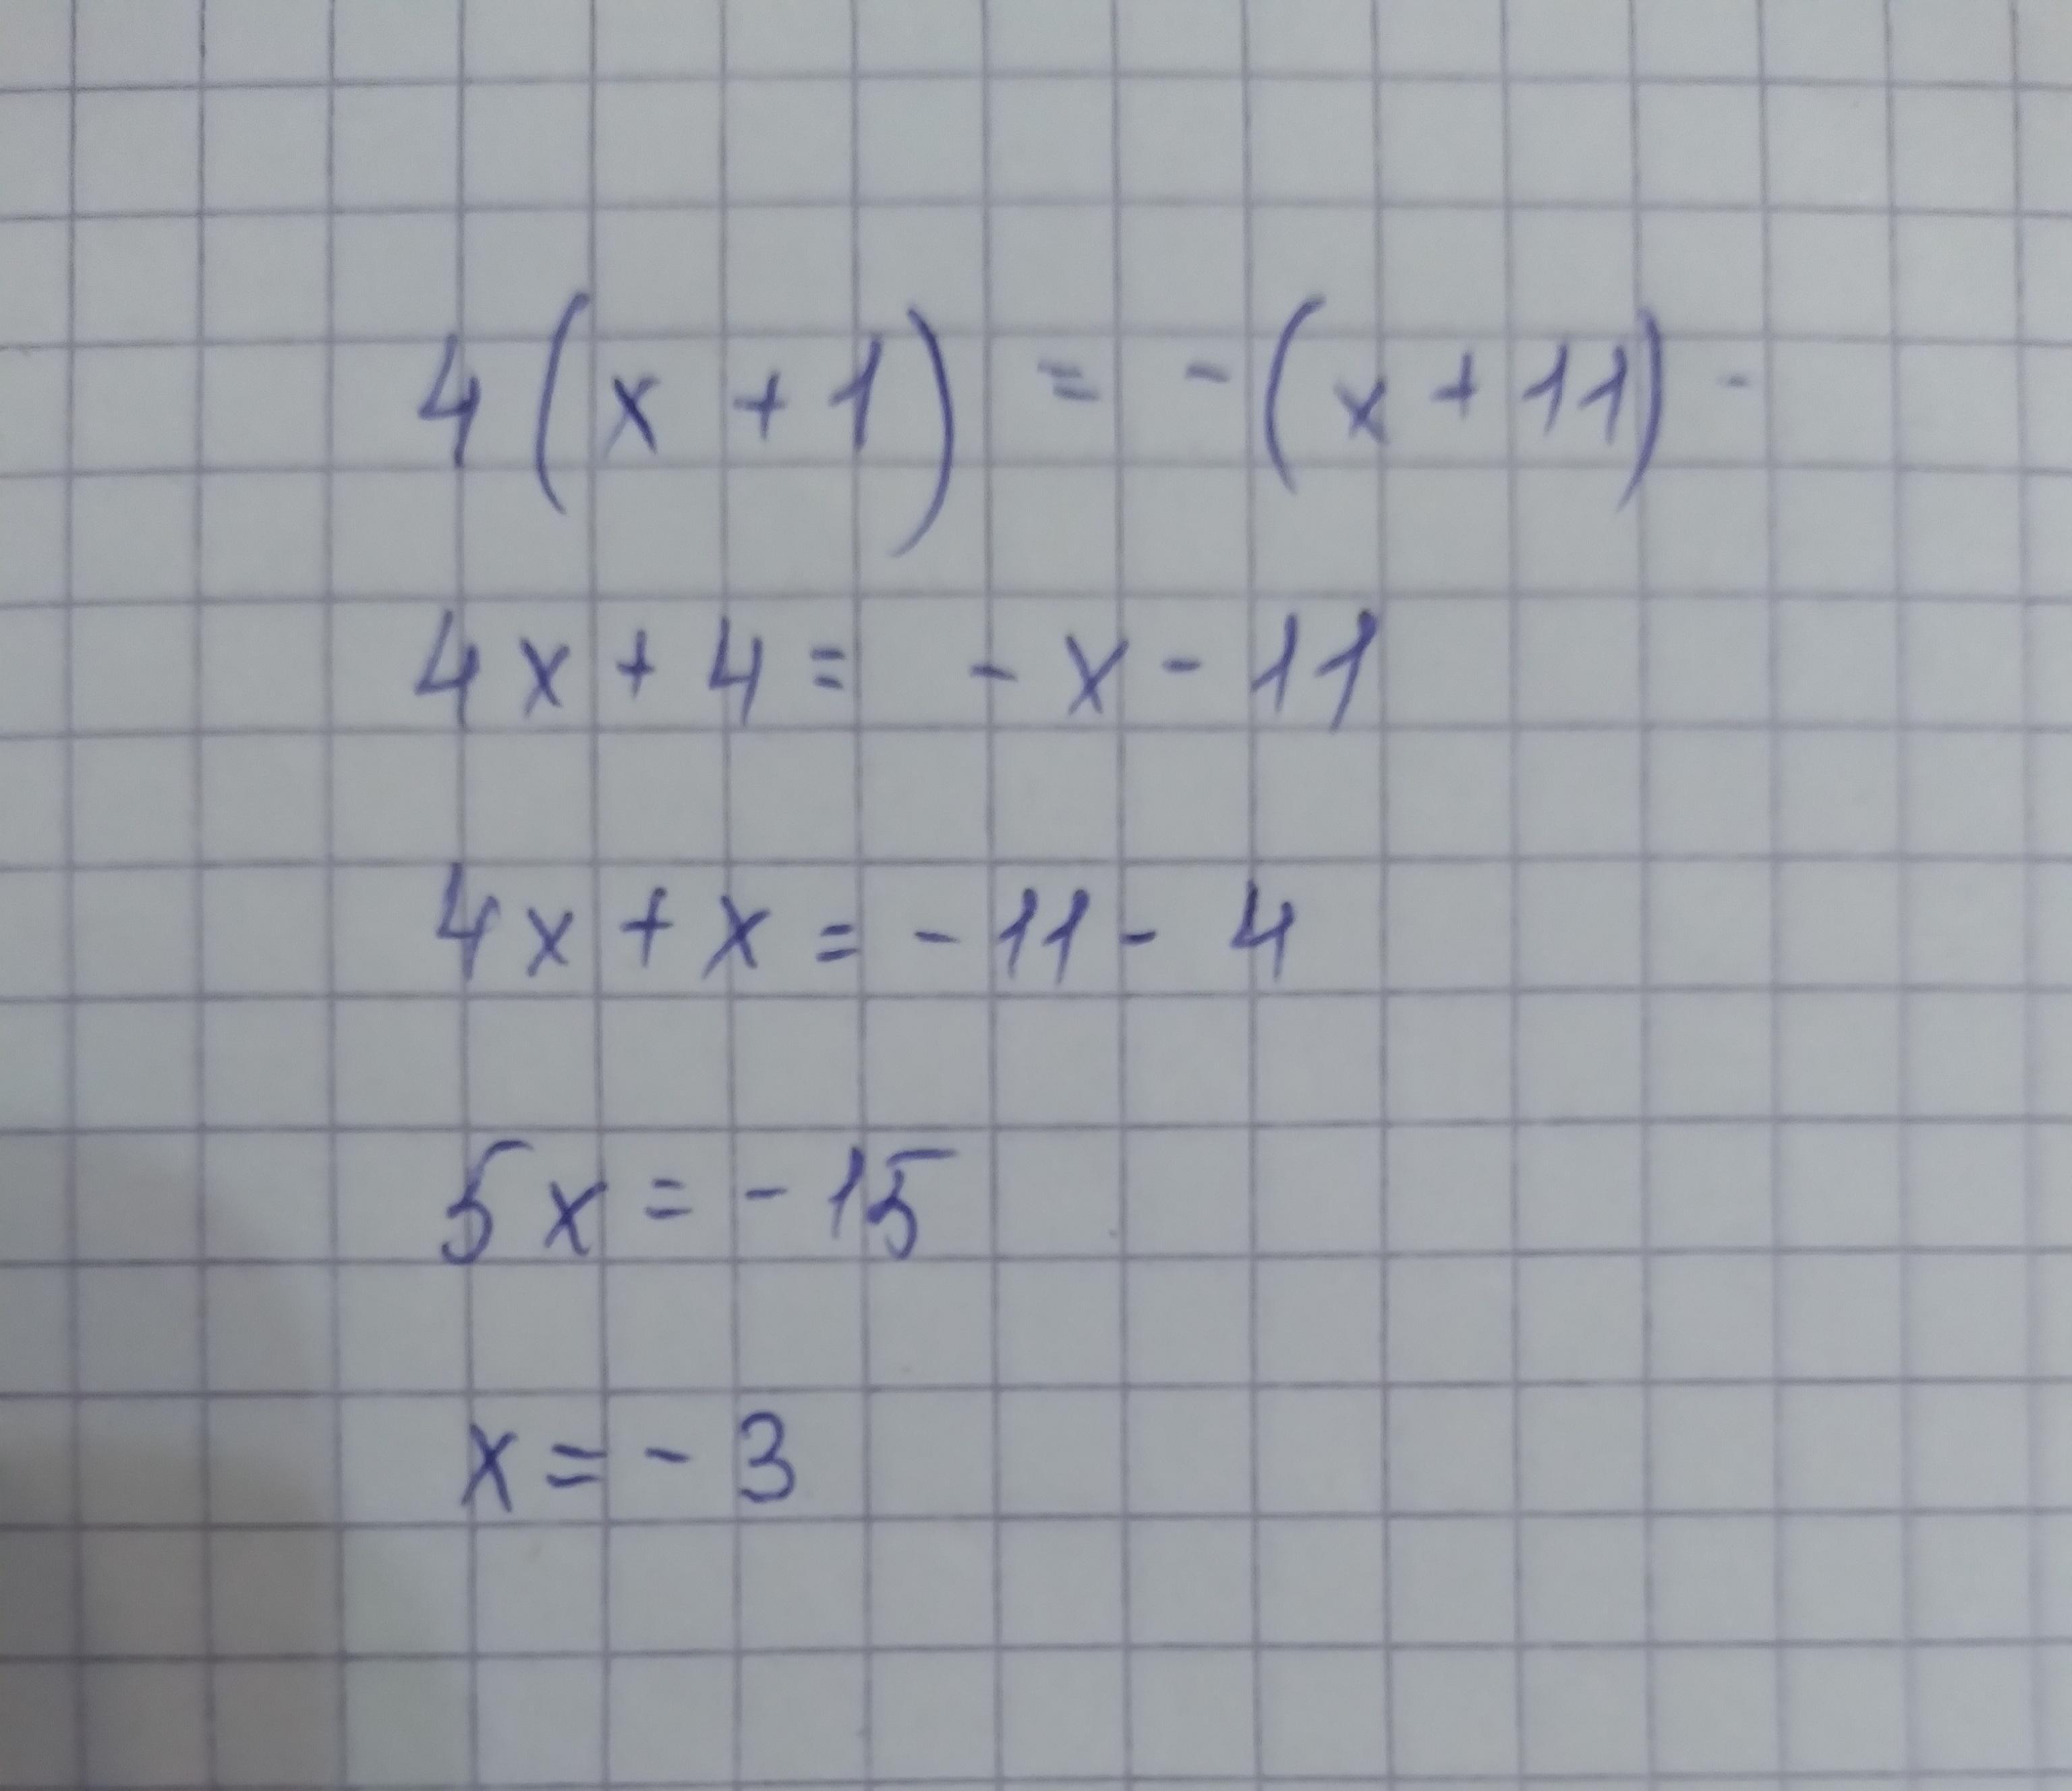 4(x+1) = -(x+11) -
4x+4= -x-11
4x+x=-11-4
5x=-15
x=-3